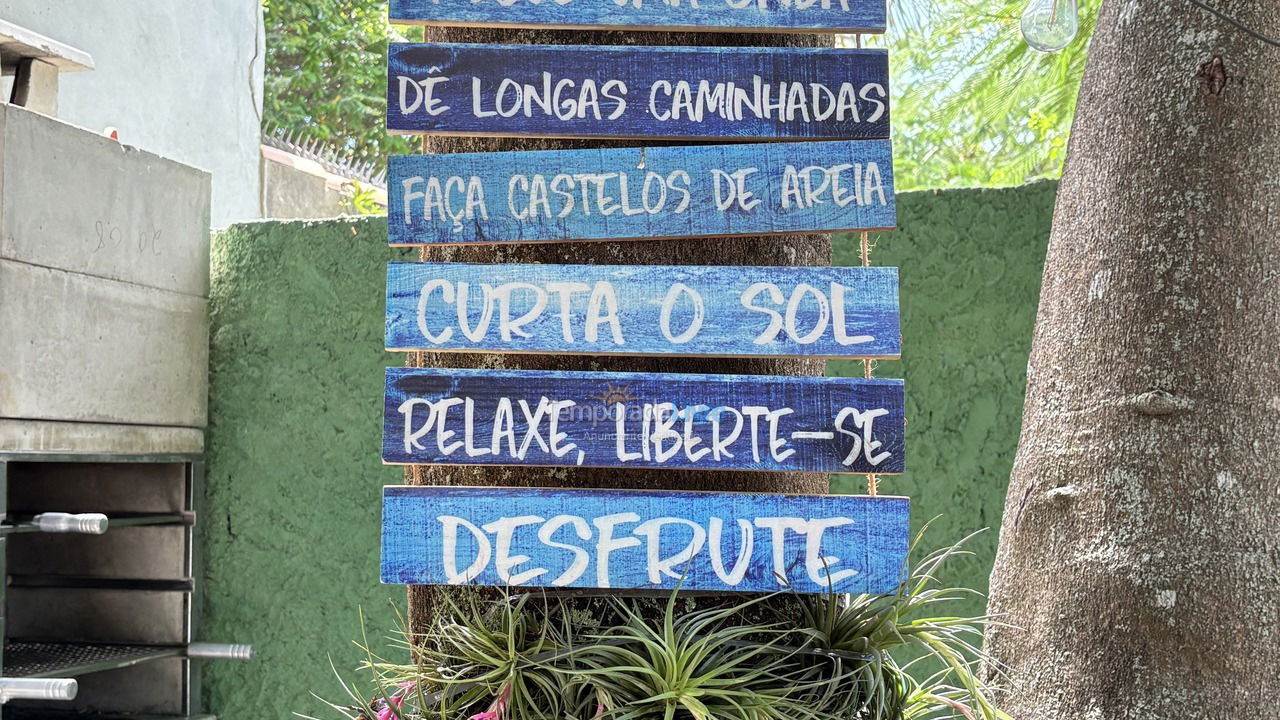 DÊ LONGAS CAMINHADAS
FAÇA CASTELOS DE AREIA
CURTA O SOL
RELAXE, LIBERTE-SE
DESFRUTE